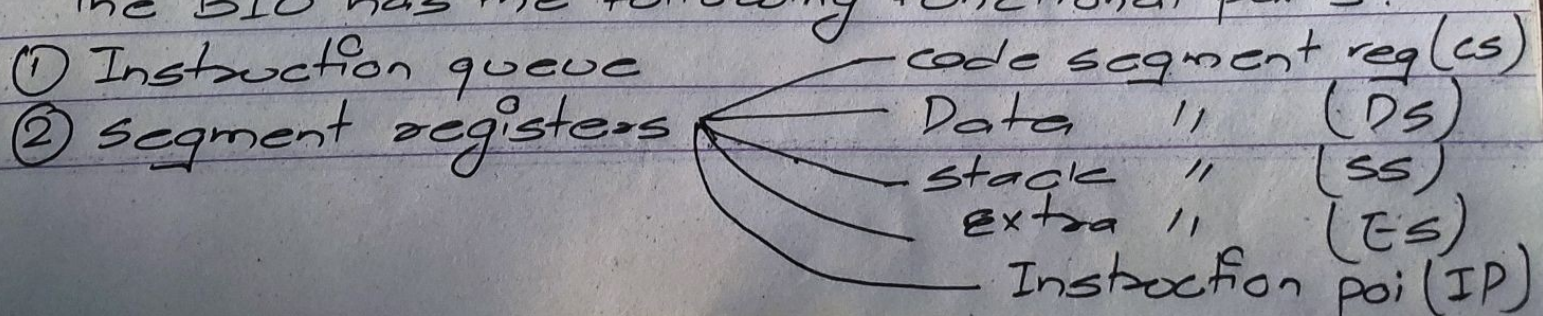 The BIU has the following functional parts:
① Instruction queue
② Segment registers
code segment reg (CS)
Data " (DS)
Stack " (SS)
extra " (ES)
Instruction poi (IP)